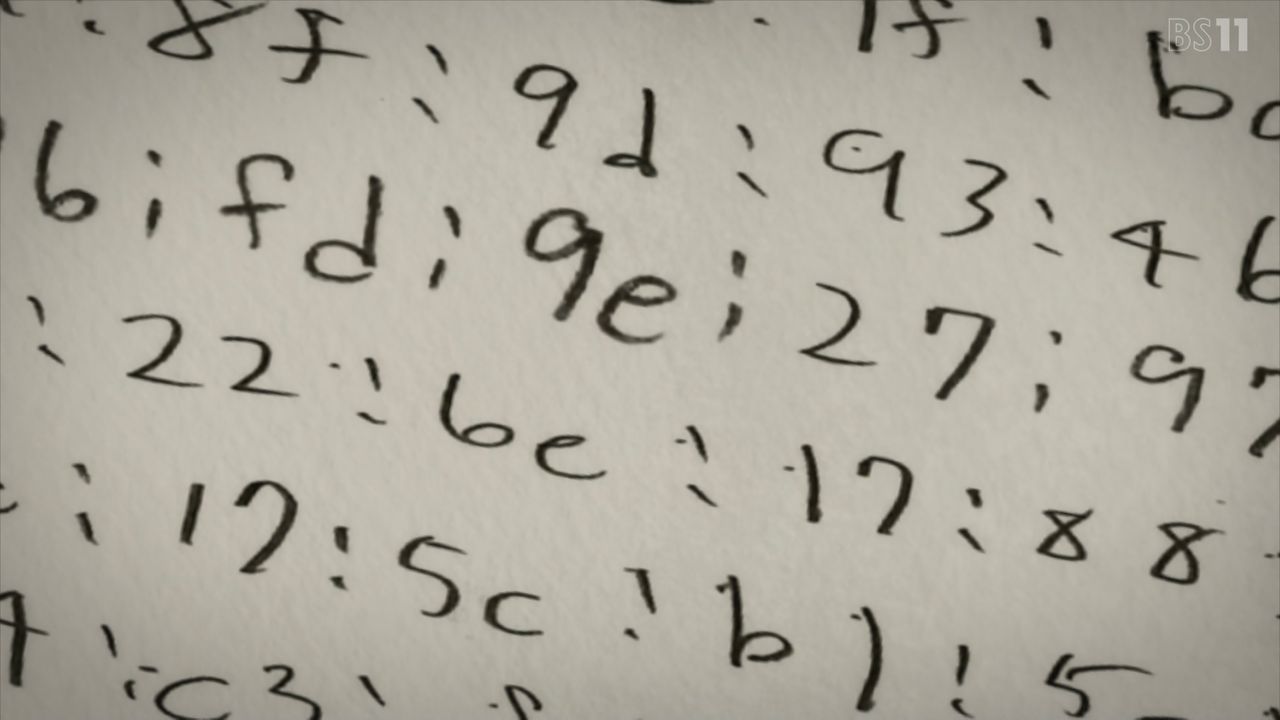 BS11
: 8f : 9d : 93 : 46
6 : fd : 9e : 27 : 97
: 22 : 6e : 17 : 88
: 17 : 5c : b1 : 5
: c3 :